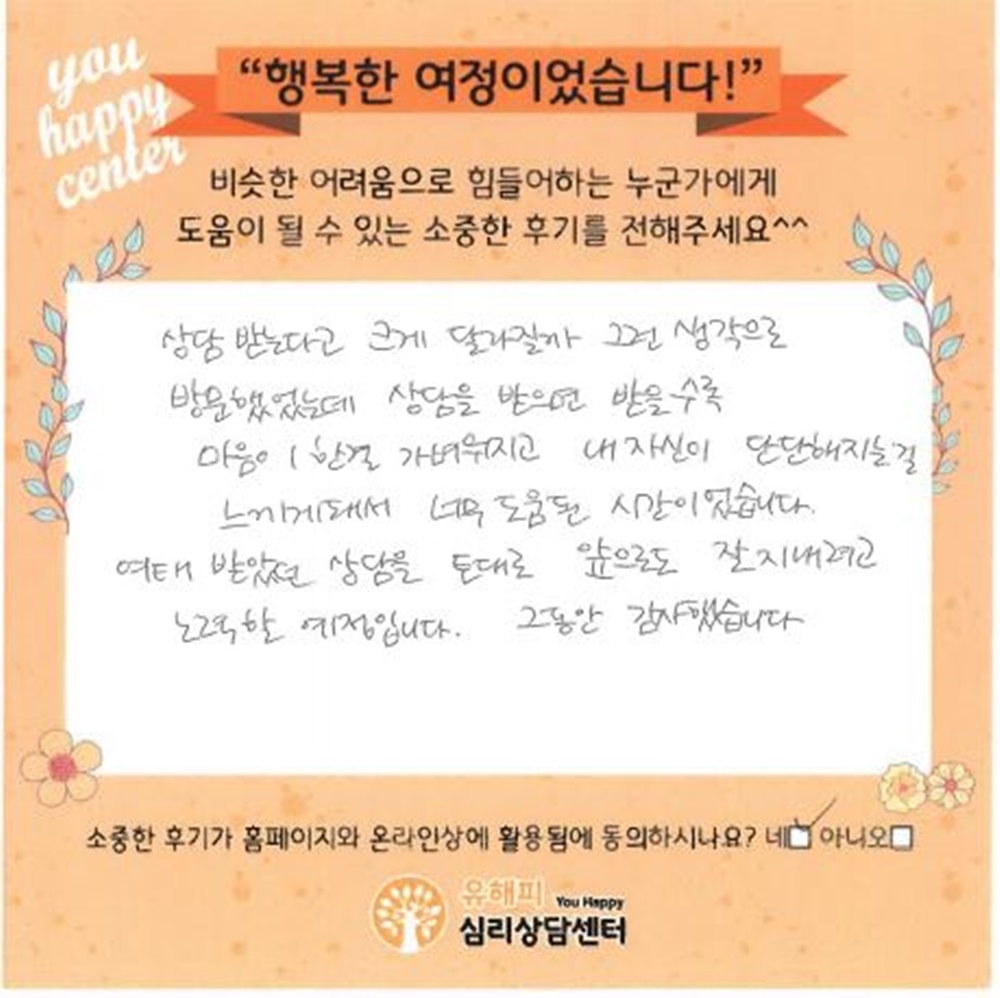 you
happy
center
“행복한 여정이었습니다!”
비슷한 어려움으로 힘들어하는 누군가에게
도움이 될 수 있는 소중한 후기를 전해주세요^^
상담 받는다고 크게 달라질까 그런 생각으로
방문했었는데 상담을 받으면 받을수록
마음이 한결 가벼워지고 내 자신이 단단해지는걸
느끼게돼서 너무 도움된 시간이었습니다.
여태 받았던 상담을 토대로 앞으로도 잘 지내려고
노력할 예정입니다. 그동안 감사했습니다
소중한 후기가 홈페이지와 온라인상에 활용됨에 동의하시나요? 네 아니오
유해피 You Happy
심리상담센터